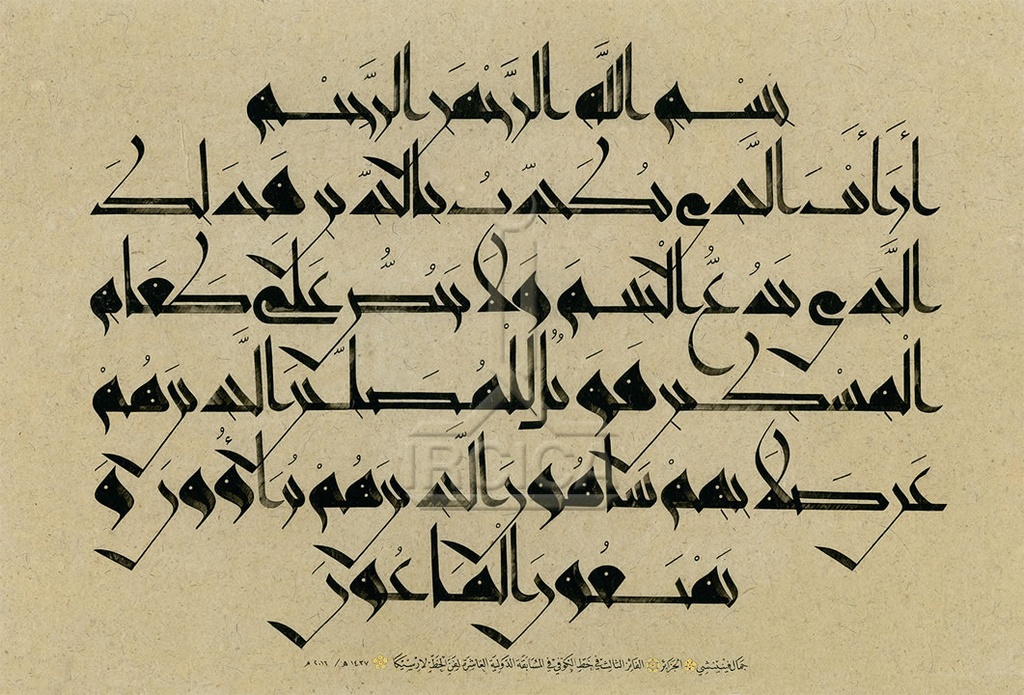 بسم الله الرحمن الرحيم
أرأيت الذي يكذب بالدين فذلك
الذي يدع اليتيم ولا يحض على طعام
المسكين فويل للمصلين الذين هم
عن صلاتهم ساهون الذين هم يرآؤون و
يمنعون الماعون
جمال فيتيشي الجزائر الفائز الثالث في خط الكوفي في المسابقة الدولية العاشرة لفن الخط لارسيكا ١٤٣٧ هـ / ٢٠١٦ م
RCICA